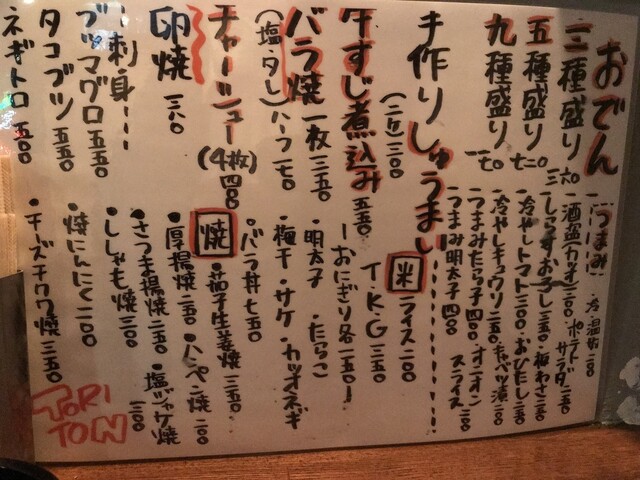 おでん
三種盛り 三六〇
五種盛り 七二〇
九種盛り
手作りしゅうまい
(二ケ)三〇〇
牛すじ煮込み 五五〇
バラ焼 一枚 三五〇
(塩・タレ)ハーフ 一七〇
チャーシュー
(4枚) 四〇〇
卵焼 三八〇
刺身
ブツマグロ 五五〇
タコブツ 五五〇
ネギトロ 五〇〇
つまみ
・冷温奴 二〇〇
・酒盗 ・ポテトサラダ 二五〇
・しらすおろし 二五〇 ・板わさ 二五〇
・冷やしトマト 三〇〇 ・おひたし 二五〇
・冷やしキュウリ 二五〇 ・キャベツ漬 二〇〇
・つまみたら子 四〇〇 ・オニオンスライス 二〇〇
・つまみ明太子 四〇〇
米
ライス 二〇〇
T・K・G 三五〇
ーおにぎり各一五〇ー
・明太子 ・たらこ
・梅干・サケ・カツオネギ
・バラ丼 七五〇
焼
・茄子生姜焼 三五〇
・厚揚焼 二五〇 ・ハンペン焼 二〇〇
・さつま揚焼 二五〇 ・塩ジャケ焼 三〇〇
・ししゃも焼 二〇〇
・焼にんにく 二〇〇
・チーズチクワ焼 三五〇
TORI
TON